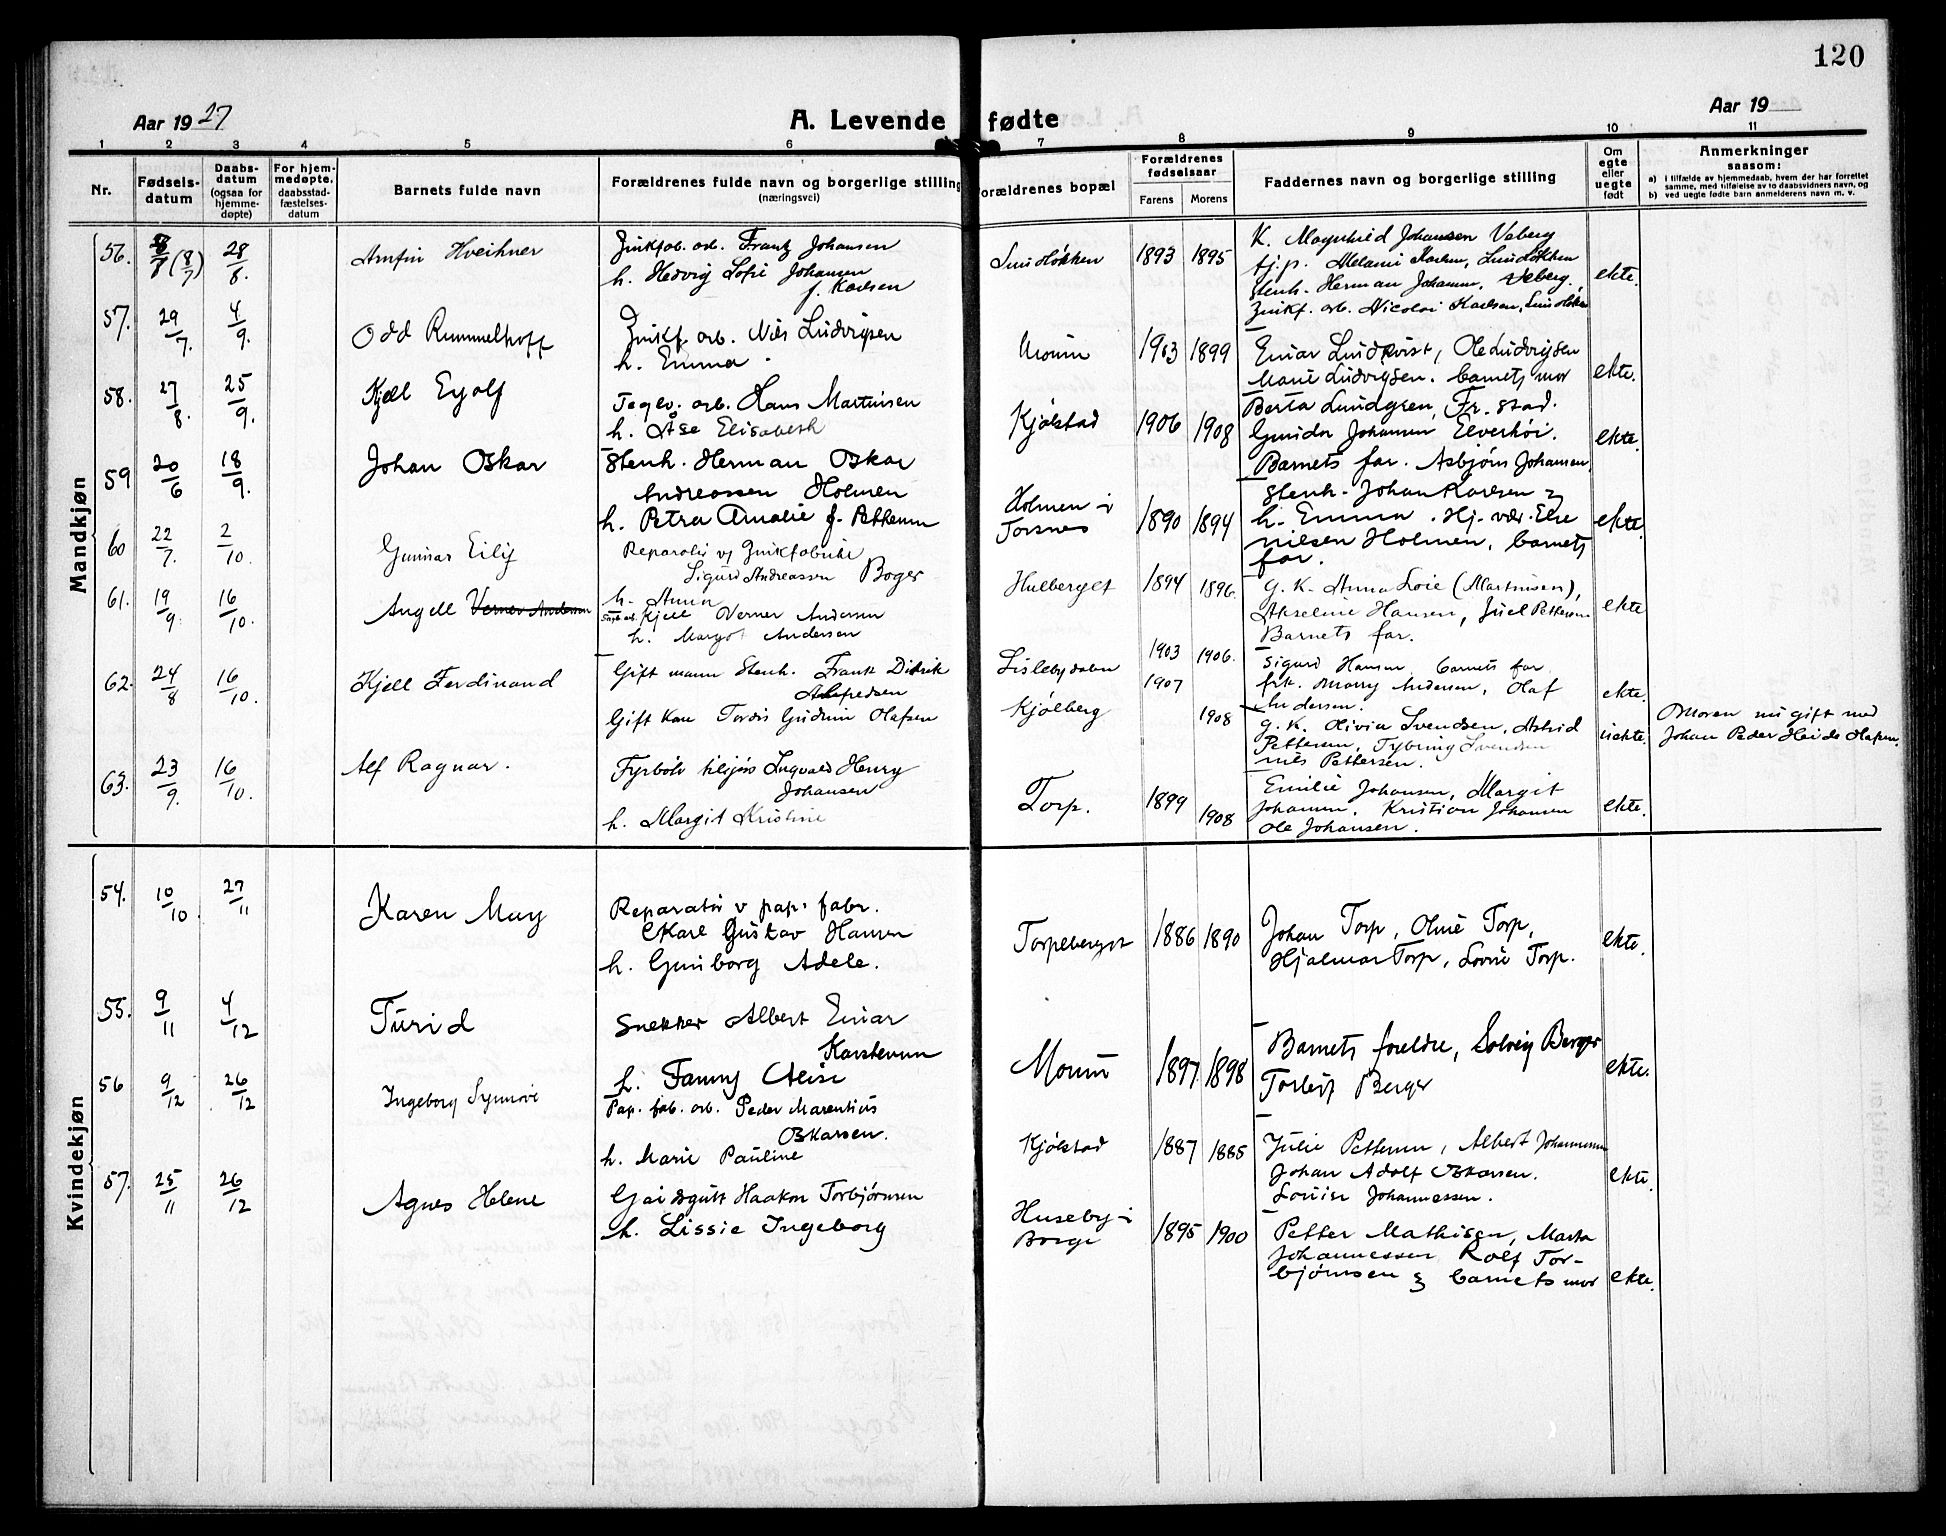 120
Aar 1927
A. Levende fødte
Aar 19
1 2 3 4 5 6 7 8 9 10 11
Nr.
Fødsels-
datum
Daabs-
datum
(ogsaa for
hjemme-
døpte)
For hjem-
medøpte,
daabsstad-
fæstelses-
datum
Barnets fulde navn
Forældrenes fulde navn og borgerlige stilling
(næringsvei)
Forældrenes bopæl
Forældrenes
fødselsaar
Farens Morens
Faddernes navn og borgerlige stilling
Om
egte
eller
uegte
født
Anmerkninger
saasom:
a) i tilfælde av hjemmedaab, hvem der har forrettet
samme, med tilføielse av to daabsvidners navn, og
b) ved uegte fødte barn anmelderens navn m. v.
Mandkjøn
56. 28/8 (8/7) 28/8. Arnfin
Zinkfab. arb. Frantz Johansen
h. Hedvig Sofie Johansen
f. Karlsen
1893 1895
K. Magnhild Johansen Veberg
tj.p. Melanie Karlsen,
Stenh. Herman Johansen, Veberg,
Zinkf. arb. Nicolai Karlsen,
ekte.
57. 29/7. 4/9. Odd Rummelhoff
Zinkf. arb. Nils Ludvigsen
h. Emma
Moum 1903 1899
Einar Lundkvist, Ole Ludvigsen
Marie Ludvigsen. barnets mor
ekte.
58. 27/8. 25/9. Kjell Eyolf
Teglv. arb. Hans Martinsen
h. Åse Elisabeth
Kjølstad 1906 1908
Berta Lundgren, Fr.stad.
Gunda Johansen Elverhöi.
Barnets far. Asbjørn Johansen,
ekte.
59 20/6 18/9. Johan Oskar
Stenh. Herman Oskar
Andreassen Holmen
h. Petra Amalie f. Pettersen
Holmen i
Torsnes 1890 1894
Stenh. Johan Karlsen &
h. Emma. Hj. vær. Else
Nilsen Holmen, barnets
far.
ekte.
60 22/7. 2/10. Gunnar Eilif
Reparatør v/ Zinkfabrikk
Sigurd Andreassen Boger
h. Anna
Hulberget 1894 1896.
g. K. Anna Loie (Martinsen),
Akseline Hansen, Juel Pettersen
Barnets far.
ekte
61. 19/9. 16/10. Angell Verner Andersen
arb. Kjell Verner Andersen
h. Margot Andersen
Lislebydalen 1903 1906.
Sigurd Hansen, barnets far
frk. Marry Andersen, Olaf
Andersen.
ekte.
62. 24/8 16/10. Kjell Ferdinand
Gift mann Stenh. Frank Didrik
Alfredsen
Gift Kone Tordis Gudrun Olafsen
Kjølberg 1907 1908
g. K. Olivia Svendsen, Astrid
Pettersen, Svendsen
Nils Pettersen.
uekte.
Moren nu gift med
Johan Peder Olafsen.
63. 23/9. 16/10. Alf Ragnar.
Fyrbøter Ingvald Henry
Johansen
h. Margit Kristine
Torp. 1899 1908
Emilie Johansen, Margit
Johansen, Kristian Johansen
Ole Johansen.
ekte.
Kvindekjøn
54. 10/10. 27/11 Karen May
Reparatør v pap. fabr.
Karl Gustav Hansen
h. Gunborg Adele.
Torpeberget 1886 1890
Johan Torp, Oline Torp,
Hjalmar Torp, Lovise Torp.
ekte.
55. 9/11 4/12 Turid
Snekker Albert Einar
Karstensen
h. Fanny Alise
Moum 1897 1898
Barnets foreldre, Solveig Berger
Torleif Berger
ekte.
56 9/12 26/12 Ingeborg Synnøve
Pap. fab. arb. Peder Marentius
Oskarsen.
h. Marie Pauline
Kjølstad 1887 1885
Julie Pettersen, Albert Johannessen
Johan Adolf Oskarsen.
Louise Johannessen.
ekte.
57. 25/11 26/12 Agnes Helene
Gårdsgutt Haakon Torbjørnsen
h. Lissie Ingeborg
Huseby i
Borge 1895 1900
Petter Mathisen, Marta
Johannessen Rolf Tor-
bjørnsen & barnets mor
ekte.